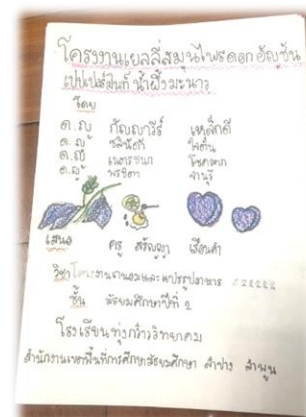 โครงงานเยลลี่สมุนไพรดอกอัญชัน
เปปเปอร์มินท์ น้ำผึ้งมะนาว
โดย
ด.ญ กัญญาวีร์ เหล็กดี
ด.ญ ใจตั๋น
ด.ญ เนตรชนก
ด.ญ พรธิดา จานุรี
เสนอ ครู สรัญญา เรือนคำ
วิชา โครงงานถนอมและแปรรูปอาหาร
ชั้น มัธยมศึกษาปีที่ 2
โรงเรียนทุ่งกว๋าววิทยาคม
สำนักงานเขตพื้นที่การศึกษามัธยมศึกษา ลำปาง ลำพูน